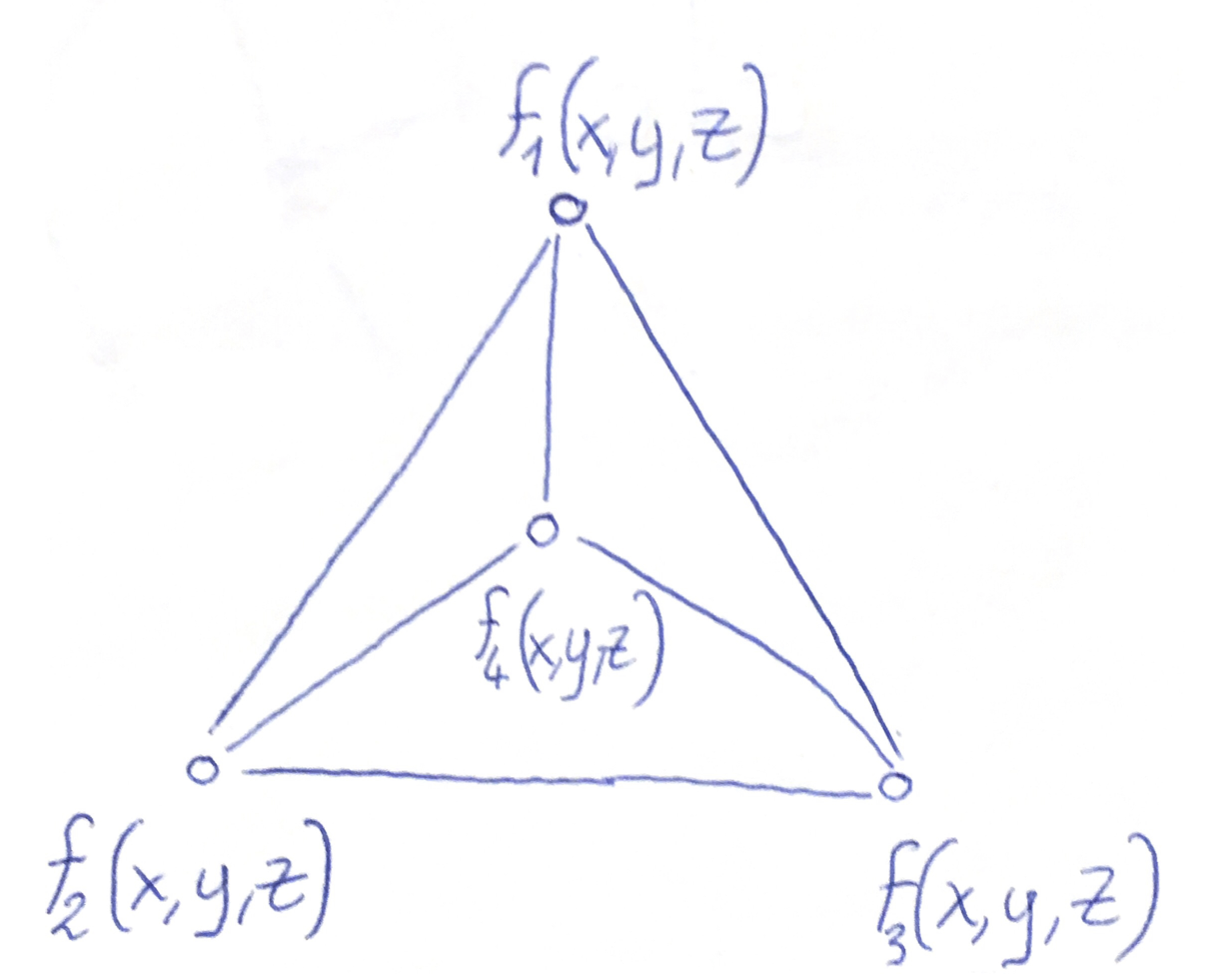 f₁(x,y,z)
f₄(x,y,z)
f₂(x,y,z)
f₃(x,y,z)